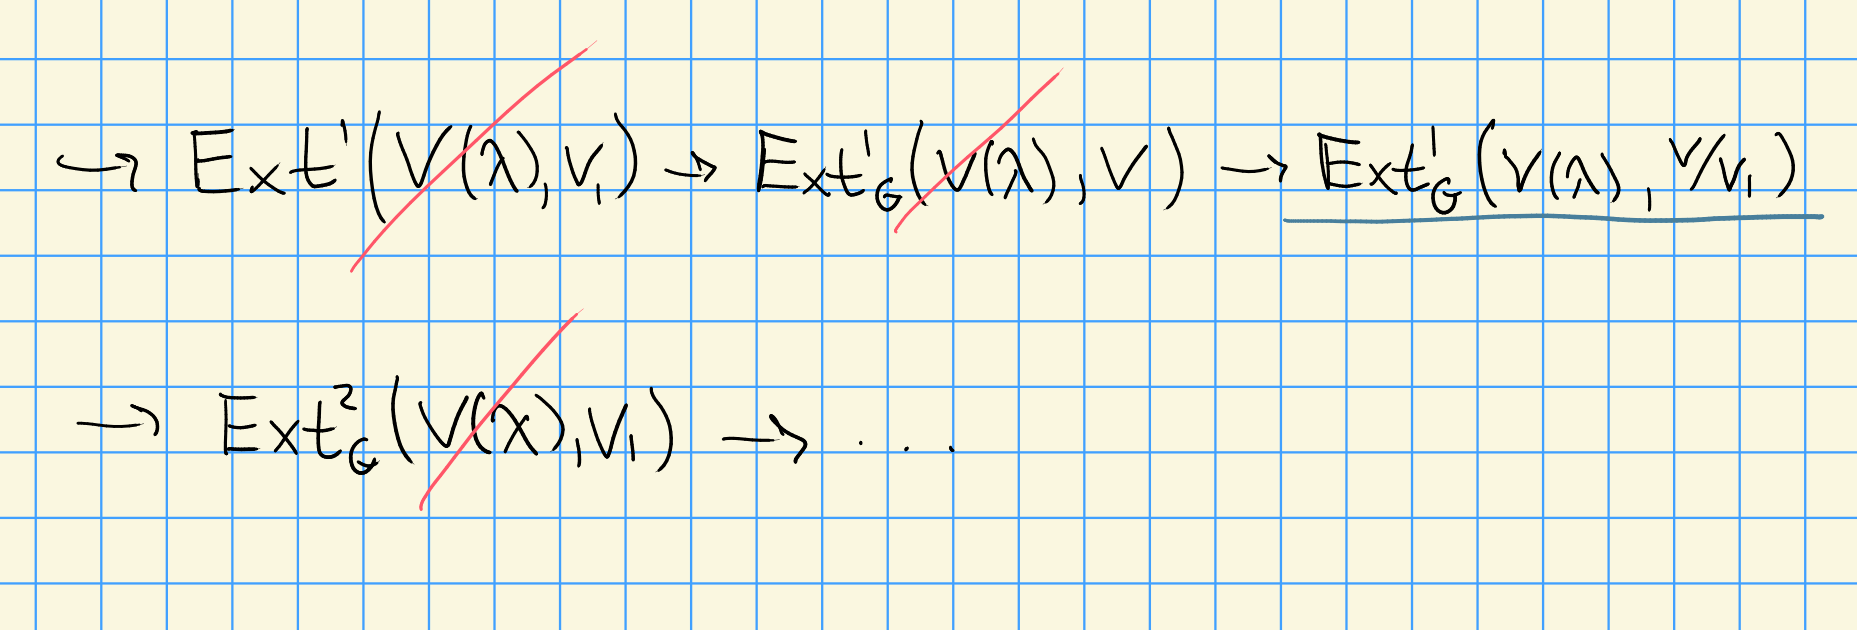 → Ext¹(V(λ), V₁) → Ext¹_G(V(λ), V) → Ext¹_G(V(λ), V/V₁)
→ Ext²_G(V(λ), V₁) → ....